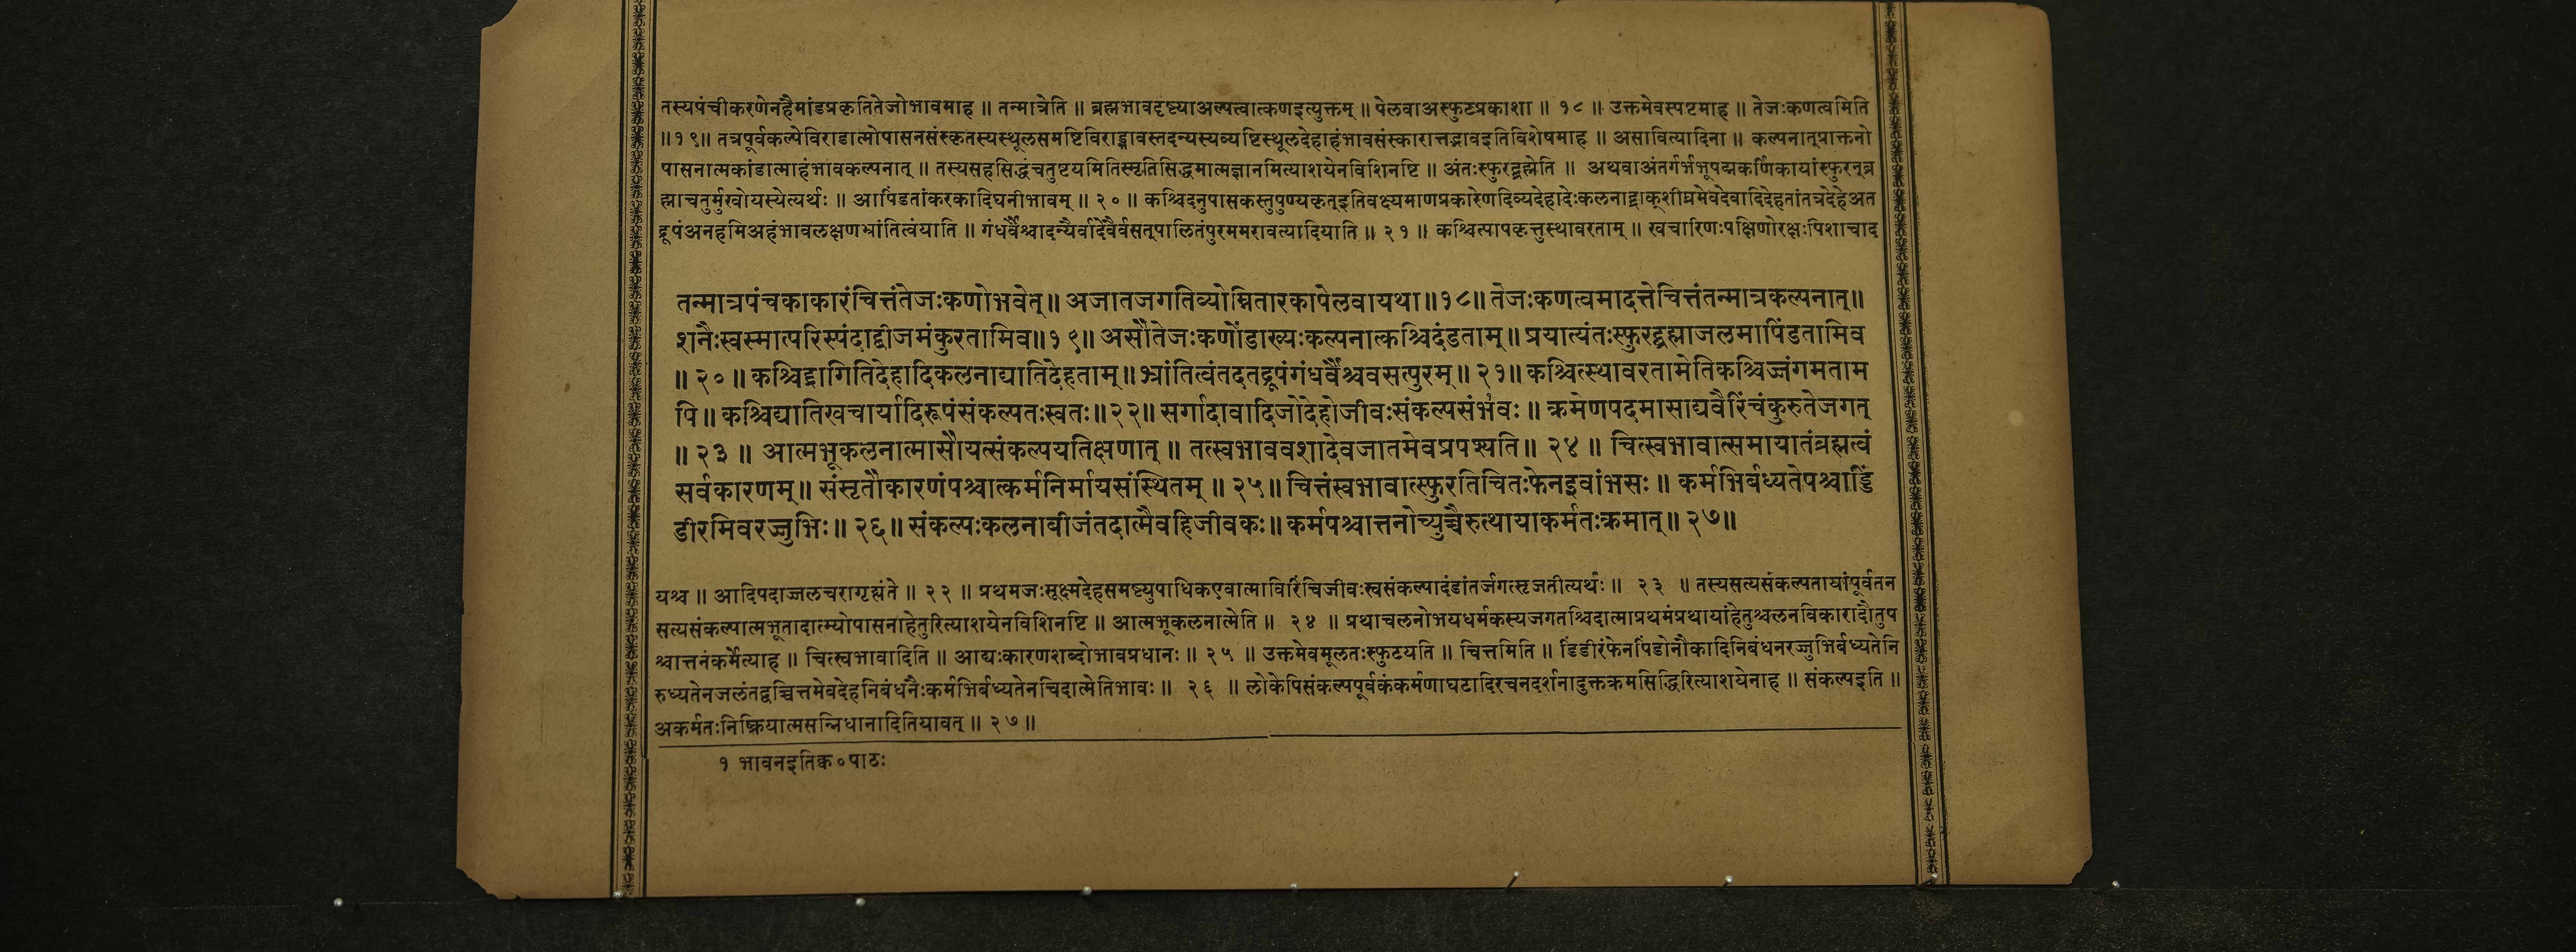 तस्यपंचीकरणेनहैमांडप्रकृतितेजोभावमाह ॥ तन्मात्रेति ॥ ब्रह्मभावदृष्ट्याअल्पत्वात्कणइत्युक्तम् ॥ पेलवाअस्फुटप्रकाशा ॥ १८ ॥ उक्तमेवस्पष्टमाह ॥ तेजःकणत्वमिति
॥१९॥ तत्रपूर्वकल्पेविराडात्मोपासनसंस्कृतस्यस्थूलसमष्टिविराड्भावस्तदन्यस्यव्यष्टिस्थूलदेहाहंभावसंस्कारात्तद्भावइतिविशेषमाह ॥ असावित्यादिना ॥ कल्पनात्प्राक्तनो
पासनात्मकांडात्माहंभावकल्पनात् ॥ तस्यसहसिद्धंचतुष्टयमितिस्मृतिसिद्धमात्मज्ञानमित्याशयेनविशिनष्टि ॥ अंतःस्फुरद्ब्रह्मेति ॥ अथवाअंतर्गर्भभूपद्मकर्णिकायांस्फुरन्ब्र
ह्माचतुर्मुखोयस्येत्यर्थः ॥ आपिंडतांकरकादिघनीभावम् ॥ २० ॥ कश्चिदनुपासकस्तुपुण्यकृत्इतिवक्ष्यमाणप्रकारेणदिव्यदेहादेःकलनाद्द्राक्शीघ्रमेवदेवादिदेहतांतत्रदेहेअत
द्रूपंअनहमिअहंभावलक्षणभ्रांतित्वंयाति ॥ गंधर्वैश्चादन्यैर्वादेवैर्वसत्पालितंपुरममरावत्यादियाति ॥ २१ ॥ कश्चित्पापकृत्तुस्थावरताम् ॥ खचारिणःपक्षिणोरक्षःपिशाचाद
तन्मात्रपंचकाकारंचित्तंतेजःकणोभवेत् ॥ अजातजगतिव्योम्नितारकापेलवायथा ॥१८॥ तेजःकणत्वमादत्तेचित्तंतन्मात्रकल्पनात्॥
शनैःस्वस्मात्परिस्पंदाद्बीजमंकुरतामिव॥१९॥ असौतेजःकणोंडाख्यःकल्पनात्कश्चिदंडताम् ॥ प्रयात्यंतःस्फुरद्ब्रह्माजलमापिंडतामिव
॥ २० ॥ कश्चिद्द्रागितिदेहादिकलनाद्यातिदेहताम् ॥ भ्रांतित्वंतदतद्रूपंगंधर्वैश्चवसत्पुरम् ॥ २१॥ कश्चित्स्थावरतामेतिकश्चिज्जंगमताम
पि ॥ कश्चिद्यातिखचार्यादिरूपंसंकल्पतःस्वतः॥२२॥ सर्गादावादिजोदेहोजीवःसंकल्पसंभवः ॥ क्रमेणपदमासाद्यवैरिंचंकुरुतेजगत्
॥ २३ ॥ आत्मभूकलनात्मासौयत्संकल्पयतिक्षणात् ॥ तत्स्वभाववशादेवजातमेवप्रपश्यति॥ २४ ॥ चित्स्वभावात्समायातंब्रह्मत्वं
सर्वकारणम् ॥ संसृतौकारणंपश्चात्कर्मनिर्मायसंस्थितम् ॥ २५॥ चित्तंस्वभावात्स्फुरतिचितःफेनइवांभसः ॥ कर्मभिर्बध्यतेपश्चाड्डिं
डीरमिवरज्जुभिः॥ २६॥ संकल्पःकलनाबीजंतदात्मैवहिजीवकः॥ कर्मपश्चात्तनोच्युच्चैरुत्थायाकर्मतःक्रमात्॥ २७॥
यश्च ॥ आदिपदाज्जलचरागृह्यंते ॥ २२ ॥ प्रथमजःसूक्ष्मदेहसमष्ट्युपाधिकएवात्माविरिंचिजीवःस्वसंकल्पादंडांतर्जगत्सृजतीत्यर्थः ॥ २३ ॥ तस्यसत्यसंकल्पतायांपूर्वतन
सत्यसंकल्पात्मभूतादात्म्योपासनाहेतुरित्याशयेनविशिनष्टि ॥ आत्मभूकलनात्मेति ॥ २४ ॥ प्रथाचलनोभयधर्मकस्यजगतश्चिदात्माप्रथमंप्रथायांहेतुश्चलनविकारादौतुप
श्चात्तनंकर्मेत्याह ॥ चित्स्वभावादिति ॥ आद्यःकारणशब्दोभावप्रधानः ॥ २५ ॥ उक्तमेवमूलतःस्फुटयति ॥ चित्तमिति ॥ डिंडीरंफेनपिंडोनौकादिनिबंधनरज्जुभिर्बध्यतेनि
रुध्यतेनजलंतद्वच्चित्तमेवदेहनिबंधनैःकर्मभिर्बध्यतेनचिदात्मेतिभावः ॥ २६ ॥ लोकेपिसंकल्पपूर्वकंकर्मणाघटादिरचनदर्शनादुक्तक्रमसिद्धिरित्याशयेनाह ॥ संकल्पइति ॥
अकर्मतःनिष्क्रियात्मसन्निधानादितियावत् ॥ २७ ॥
१ भावनइतिक्व०पाठः